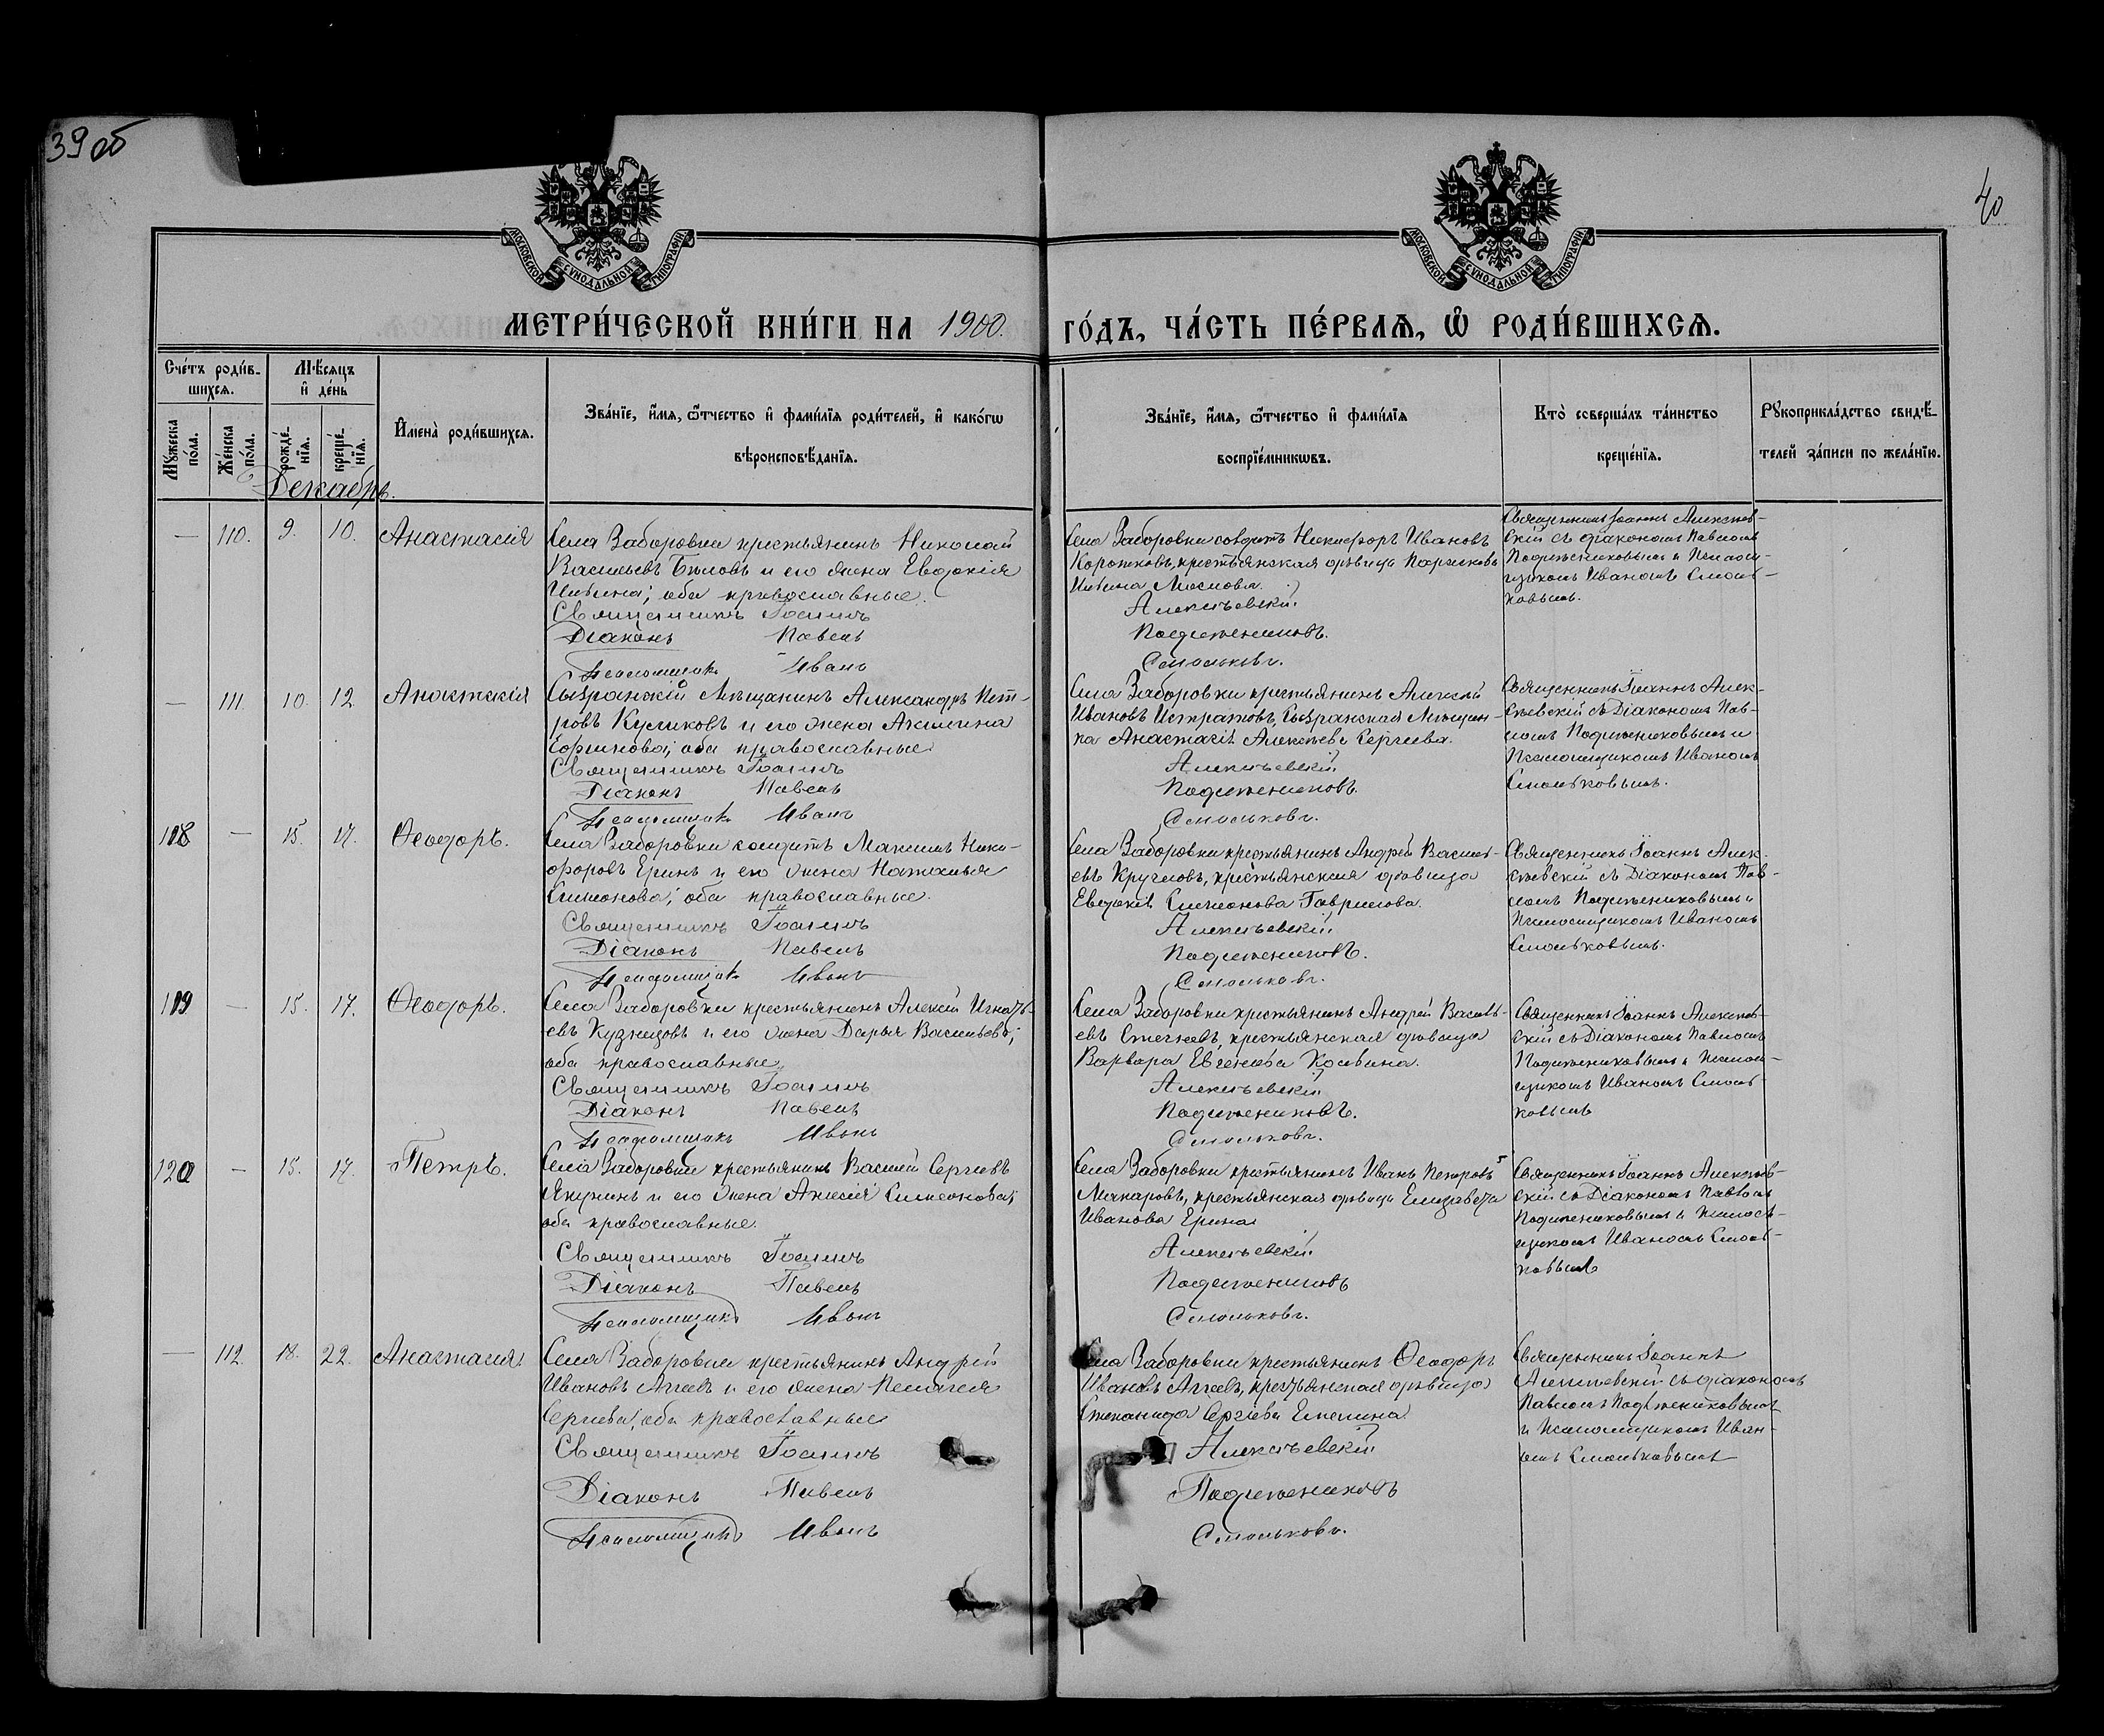 39 об
40
МОСКОВСКОЙ СѴНОДАЛЬНОЙ ТИПОГРАФІИ
МОСКОВСКОЙ СѴНОДАЛЬНОЙ ТИПОГРАФІИ
МЕТРИ́ЧЕСКОЙ КНИ́ГИ НА 1900. ГО́ДЪ, ЧА́СТЬ ПЕ́РВАѦ, Ѽ РОДИ́ВШИХСѦ.
Сче́тъ роди́в-
шихсѧ.
Мꙋ́жеска
по́ла.
Же́нска
по́ла.
Мѣ́сѧцъ
и҆ де́нь
рожде́-
нїѧ.
креще́-
нїѧ.
И҆мена̀ роди́вшихсѧ.
Зва́нїе, и҆́мѧ, ѻ҆́тчество и҆ фами́лїѧ роди́телей, и҆ како́гѡ
вѣроисповѣ́данїѧ.
Зва́нїе, и҆́мѧ, ѻ҆́тчество и҆ фами́лїѧ
воспрїе́мникѡвъ.
Кто̀ соверша́лъ та́инство
креще́нїѧ.
Рꙋкоприкла́дство свидѣ́-
телей за́писи по жела́нїю.
Декабрь.
— 110. 9. 10. Анастасія
Села Заборовки крестьянинъ Николай
Васильевъ Бѣловъ и его жена Евдокія
оба православные.
Священникъ Іоаннъ
Діаконъ Павелъ
Псаломщикъ Иванъ
Села Заборовки солдатъ Никифоръ Ивановъ
крестьянская дѣвица
Алексѣевскій.
Подлипениковъ.
Смольковъ.
Священникъ Іоаннъ Алексѣев-
скій съ діакономъ Павломъ
и Псалом-
щикомъ Иваномъ Смоль-
ковымъ.
— 111. 10. 12. Анастасія
Сызранскій Мѣщанинъ Александръ Пет-
ровъ Куликовъ и его жена Акилина
оба православные
Священникъ Іоаннъ
Діаконъ Павелъ
Псаломщикъ Иванъ
Села Заборовки крестьянинъ Алексѣй
Ивановъ Истратовъ, Сызранская Мѣщан-
ка Анастасія Алексѣева Сергѣева.
Алексѣевскій.
Смольковъ.
Священникъ Іоаннъ Алек-
сѣевскій съ Діакономъ Пав-
ломъ и
Псаломщикомъ Иваномъ
Смольковымъ.
118 — 15. 17. Ѳеодоръ.
Села Заборовки солдатъ Максимъ Ники-
форовъ Еринъ и его жена Наталья
Симеонова; оба православные.
Священникъ Іоаннъ
Діаконъ Павелъ
Псаломщикъ Иванъ
Села Заборовки крестьянинъ Андрей Василь-
евъ Кругловъ, крестьянская дѣвица
Евдокія Симеонова Гаврилова.
Алексѣевскій.
Смольковъ.
Священникъ Іоаннъ Алек-
сѣевскій съ Діакономъ Пав-
ломъ и
Псаломщикомъ Иваномъ
Смольковымъ.
119 — 15. 17. Ѳеодоръ.
Села Заборовки крестьянинъ Алексѣй Игнать-
евъ Кузнецовъ и его жена Дарья Васильева;
оба православные
Священникъ Іоаннъ
Діаконъ Павелъ
Псаломщикъ Иванъ
Села Заборовки крестьянинъ Андрей Василь-
евъ крестьянская дѣвица
Варвара
Алексѣевскій
Смольковъ.
Священникъ Іоаннъ Алексѣев-
скій съ Діакономъ Павломъ
и Псалом-
щикомъ Иваномъ Смоль-
ковымъ
120 — 15. 17. Петръ.
Села Заборовки крестьянинъ Василій Сергѣевъ
Якунинъ и его жена Анисія Симеонова;
оба православные.
Священникъ Іоаннъ
Діаконъ Павелъ
Псаломщикъ Иванъ
Села Заборовки крестьянинъ Иванъ Петровъ
Макаровъ, крестьянская дѣвица Елизавета
Иванова Ерина
Алексѣевскій.
Смольковъ.
Священникъ Іоаннъ Алексѣев-
скій съ Діакономъ Павломъ
и Псалом-
щикомъ Иваномъ Смоль-
ковымъ
— 112. 18. 22. Анастасія.
Села Заборовки крестьянинъ Андрей
Ивановъ Агѣевъ и его жена Пелагея
Сергѣева; оба православные
Священникъ Іоаннъ
Діаконъ Павелъ
Псаломщикъ Иванъ
Села Заборовки крестьянинъ Ѳеодоръ
Ивановъ Агѣевъ, крестьянская дѣвица
Степанида Сергѣева
Алексѣевскій
Смольковъ.
Священникъ Іоаннъ
Алексѣевскій съ діакономъ
Павломъ
и Псаломщикомъ Иван-
омъ Смольковымъ